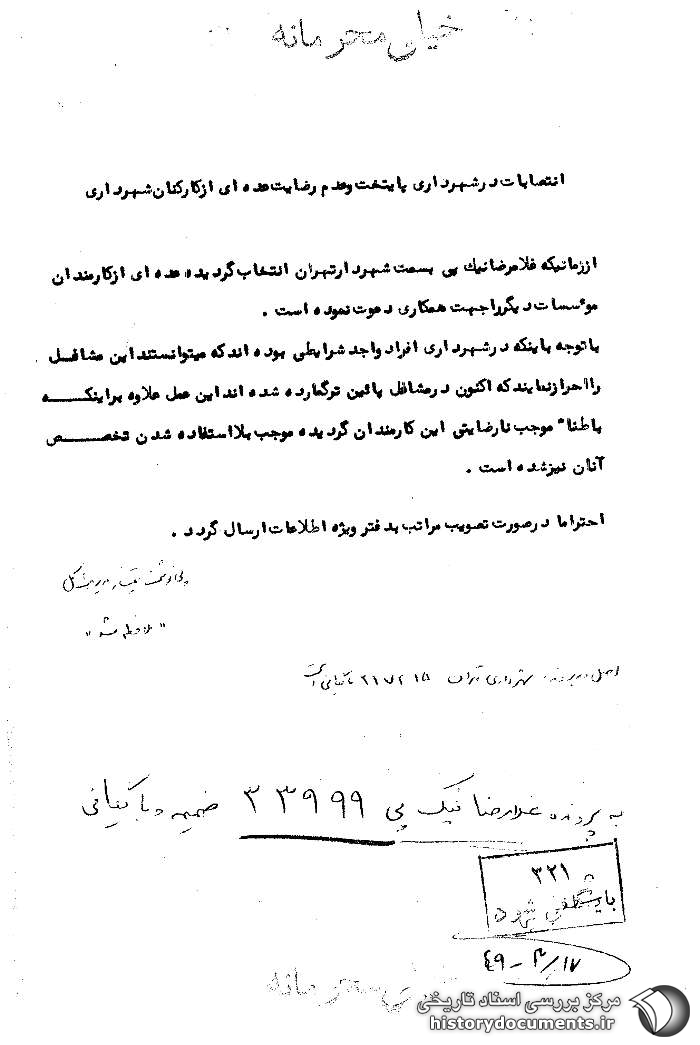 خیلی محرمانه
انتصابات در شهرداری پایتخت وعدم رضایت عده ای از کارکنان شهرداری
از زمانیکه غلامرضا نیک پی بسمت شهردار تهران انتخاب گردیده عده ای از کارمندان
موسسات دیگر را جهت همکاری دعوت نموده است .
با توجه باینکه در شهرداری افراد واجد شرایطی بوده اند که میتوانستند این مشاغل
را احراز نمایند که اکنون در مشاغل پائین تر گمارده شده اند این عمل علاوه بر اینکه
باطناً موجب نارضایتی این کارمندان گردیده موجب بلا استفاده شدن تخصص
آنان نیز شده است .
احتراما در صورت تصویب مراتب بدفتر ویژه اطلاعات ارسال گردد .
" ملاحظه شد "
اصل در پرونده شهرداری تهران ۲۱۷۲۱۵ بایگانی است
به پرونده غلامرضا نیک پی ۳۳۹۹۹ ضمیمه و بایگانی
۳۲۱
بایگانی شود
۴۹-۳/۱۷
خیلی محرمانه
مرکز بررسی اسناد تاریخی
historydocuments.ir